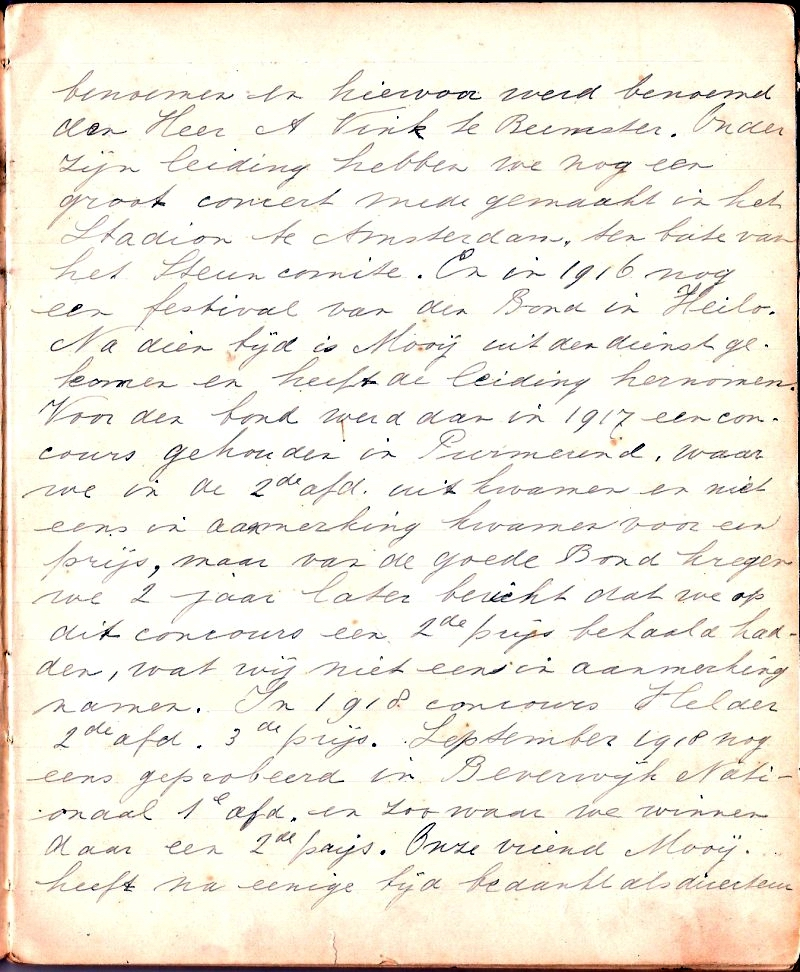 benoemen en hiervoor werd benoemd
den Heer A Vink te Beemster. Onder
zijn leiding hebben we nog een
groot concert mede gemaakt in het
Stadion te Amsterdam, ten bate van
het Steuncomite. En in 1916 nog
een festival van den Bond in Heilo.
Na dien tijd is Mooij uit den dienst ge-
komen en heeft de leiding hernomen.
Voor den bond werd dan in 1917 een con-
cours gehouden in Purmerend, waar
we in de 2de afd. uitkwamen en niet
eens in aanmerking kwamen voor een
prijs, maar van de goede Bond kregen
we 2 jaar later bericht dat we op
dit concours een 2de prijs behaald had-
den, wat wij niet eens in aanmerking
namen. In 1918 concours Helder
2de afd. 3de prijs. September 1918 nog
eens geprobeerd in Beverwijk Nati-
onaal 1e afd. en zoowaar we winnen
daar een 2de prijs. Onze vriend Mooij.
heeft na eenige tijd bedankt als directeur